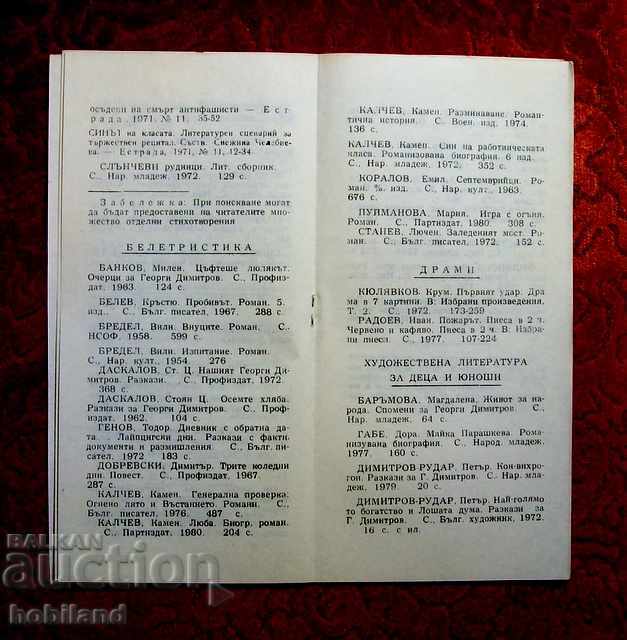 осъдени на смърт антифашисти — Ест
рада, 1971, № 11, 35-52
СИНЪТ на класата. Литературен сценарий за
тържествен рецитал. Съств. Снежина Челебие-
ва. — Естрада, 1971, № 11, 12-34.
СЛЪНЧЕВИ рудници. Лит. сборник.
С., Нар. младеж. 1972. 129 с.
Забележка: При поискване могат
да бъдат предоставени на читателите мно-
жество отделни стихотворения
БЕЛЕТРИСТИКА
БАНКОВ, Милен. Цъфтеше люлякът.
Очерци за Георги Димитров. С., Профиз-
дат. 1963. 124 с.
БЕЛЕВ, Кръстю. Пробивът. Роман. 5.
изд. С., Бълг. писател, 1967. 288 с.
БРЕДЕЛ, Вили. Внуците. Роман. С.,
НСОФ, 1958. 599 с.
БРЕДЕЛ, Вили. Изпитание. Роман.
С., Нар. култ., 1954. 276
ДАСКАЛОВ, Ст. Ц. Нашият Георги Ди-
митров. Разкази. С., Профиздат. 1972.
368 с.
ДАСКАЛОВ, Стоян Ц. Осемте хляба.
Разкази за Георги Димитров. С., Проф-
издат, 1962. 104 с.
ГЕНОВ, Тодор. Дневник с обратна да-
та. Лайпцигски дни. Разкази с факти,
документи и размишления. С., Бълг. писа-
тел. 1972 183 с.
ДОБРЕВСКИ, Димитър. Трите коледни
дни. Повест. С., Профиздат, 1967.
287 с.
КАЛЧЕВ, Камен. Генерална проверка.
Огнено лято и Въстанието. Романи. С.,
Бълг. писател, 1976. 487 с.
КАЛЧЕВ, Камен. Люба. Биогр. роман.
С., Партиздат. 1980. 204 с.
КАЛЧЕВ, Камен. Разминаване. Роман-
тична история. С., Воен. изд. 1974.
136 с.
КАЛЧЕВ, Камен. Син на работническата
класа. Романизована биография. 6 изд.
С., Нар. младеж, 1972. 352 с.
КОРАЛОВ, Емил. Септемврийци. Ро-
ман. изд. С., Нар. култ., 1963.
676 с.
ПУЙМАНОВА, Мария. Игра с огъня.
Роман. С., Партиздат. 1980. 308 с.
СТАНЕВ, Лючен. Заледеният мост. Ро-
ман. С., Бълг. писател, 1972. 152 с.
ДРАМИ
КЮЛЯВКОВ, Крум. Първият удар. Дра-
ма в 7 картини. В: Избрани произведения.
Т. 2. С., 1972. 173-259
РАДОЕВ, Иван. Пожарът. Пиеса в 2 ч.
Червено и кафяво. Пиеса в 2 ч. В: Избра-
ни пиеси. С., 1977. 107-224
ХУДОЖЕСТВЕНА ЛИТЕРАТУРА
ЗА ДЕЦА И ЮНОШИ
БАРЪМОВА, Магдалена. Живот за на-
рода. Спомени за Георги Димитров. С.,
Нар. младеж. 64 с.
ГАБЕ, Дора. Майка Парашкева. Рома-
низувана биография. С., Народ. младеж.
1977. 160 с.
ДИМИТРОВ-РУДАР, Петър. Кон-вихро-
гон. Разкази за Г. Димитров. С., Нар. мла-
деж. 1979. 20 с.
ДИМИТРОВ-РУДАР, Петър. Най-голямо-
то богатство и Лошата дума. Разкази за
Г. Димитров. С., Бълг. художник, 1972.
16 с. с ил.
BALKAN
auction
hobiland